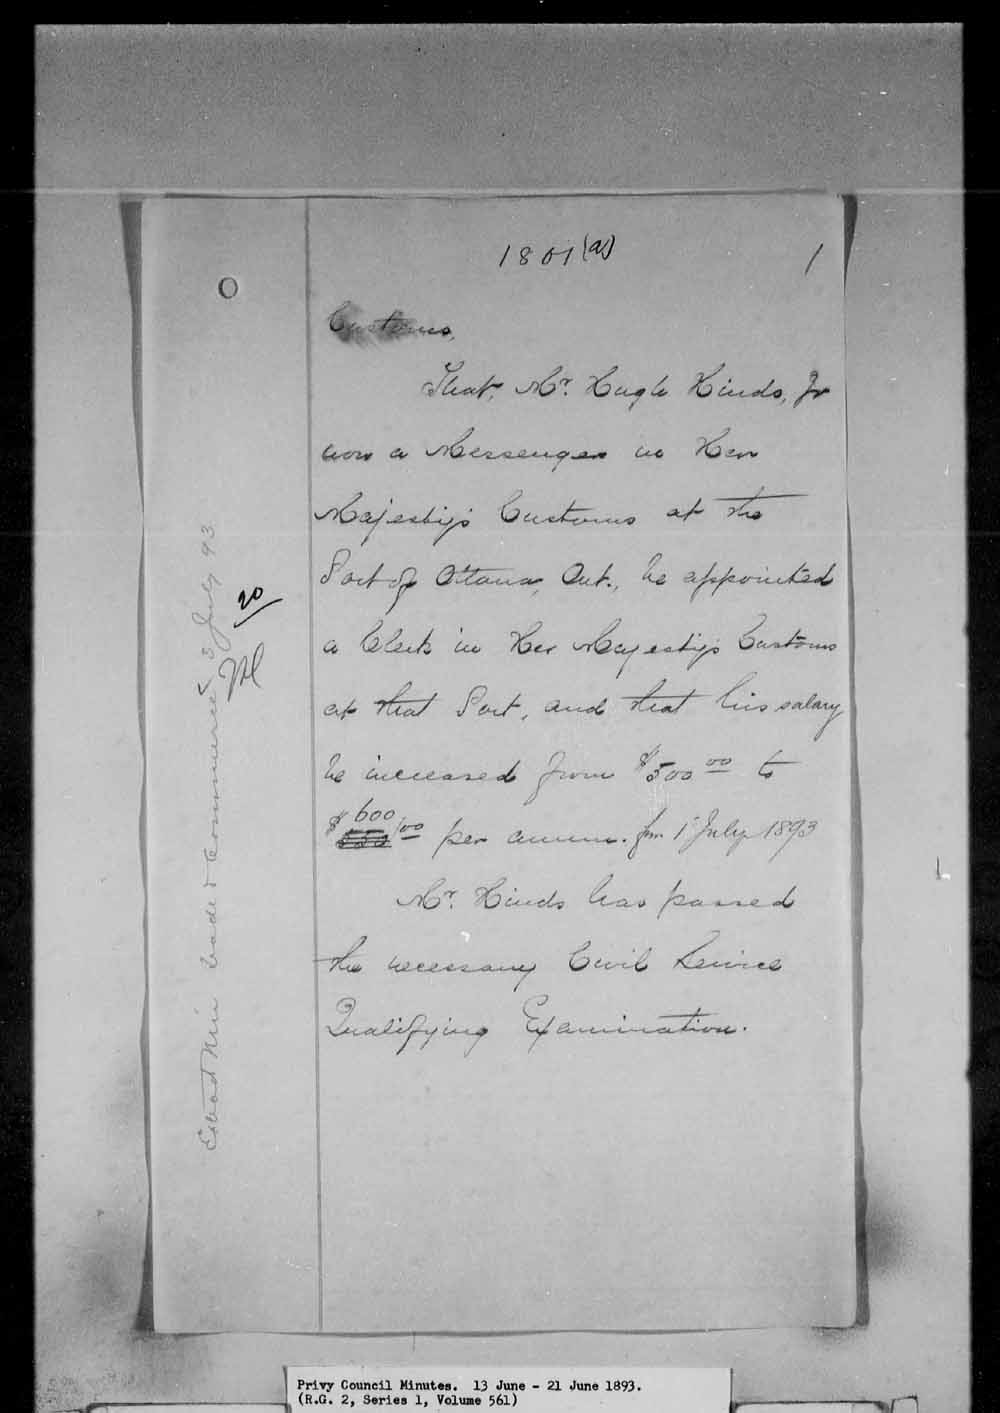 1801 (a)
1
Customs,
That, Mr. Hugh Hinds, Jr
now a Messenger in Her
Majesty's Customs at the
Port of Ottawa, Ont., be appointed
a Clerk in Her Majesty's Customs
at that Port, and that his salary
be increased from $500 00 to
$ 600/00 per annum. from 1 July 1893
Mr. Hinds has passed
the necessary Civil Service
Qualifying Examination.
Min Trade & Commerce 3 July 93
20
Privy Council Minutes. 13 June - 21 June 1893.
(R.G. 2, Series 1, Volume 561)